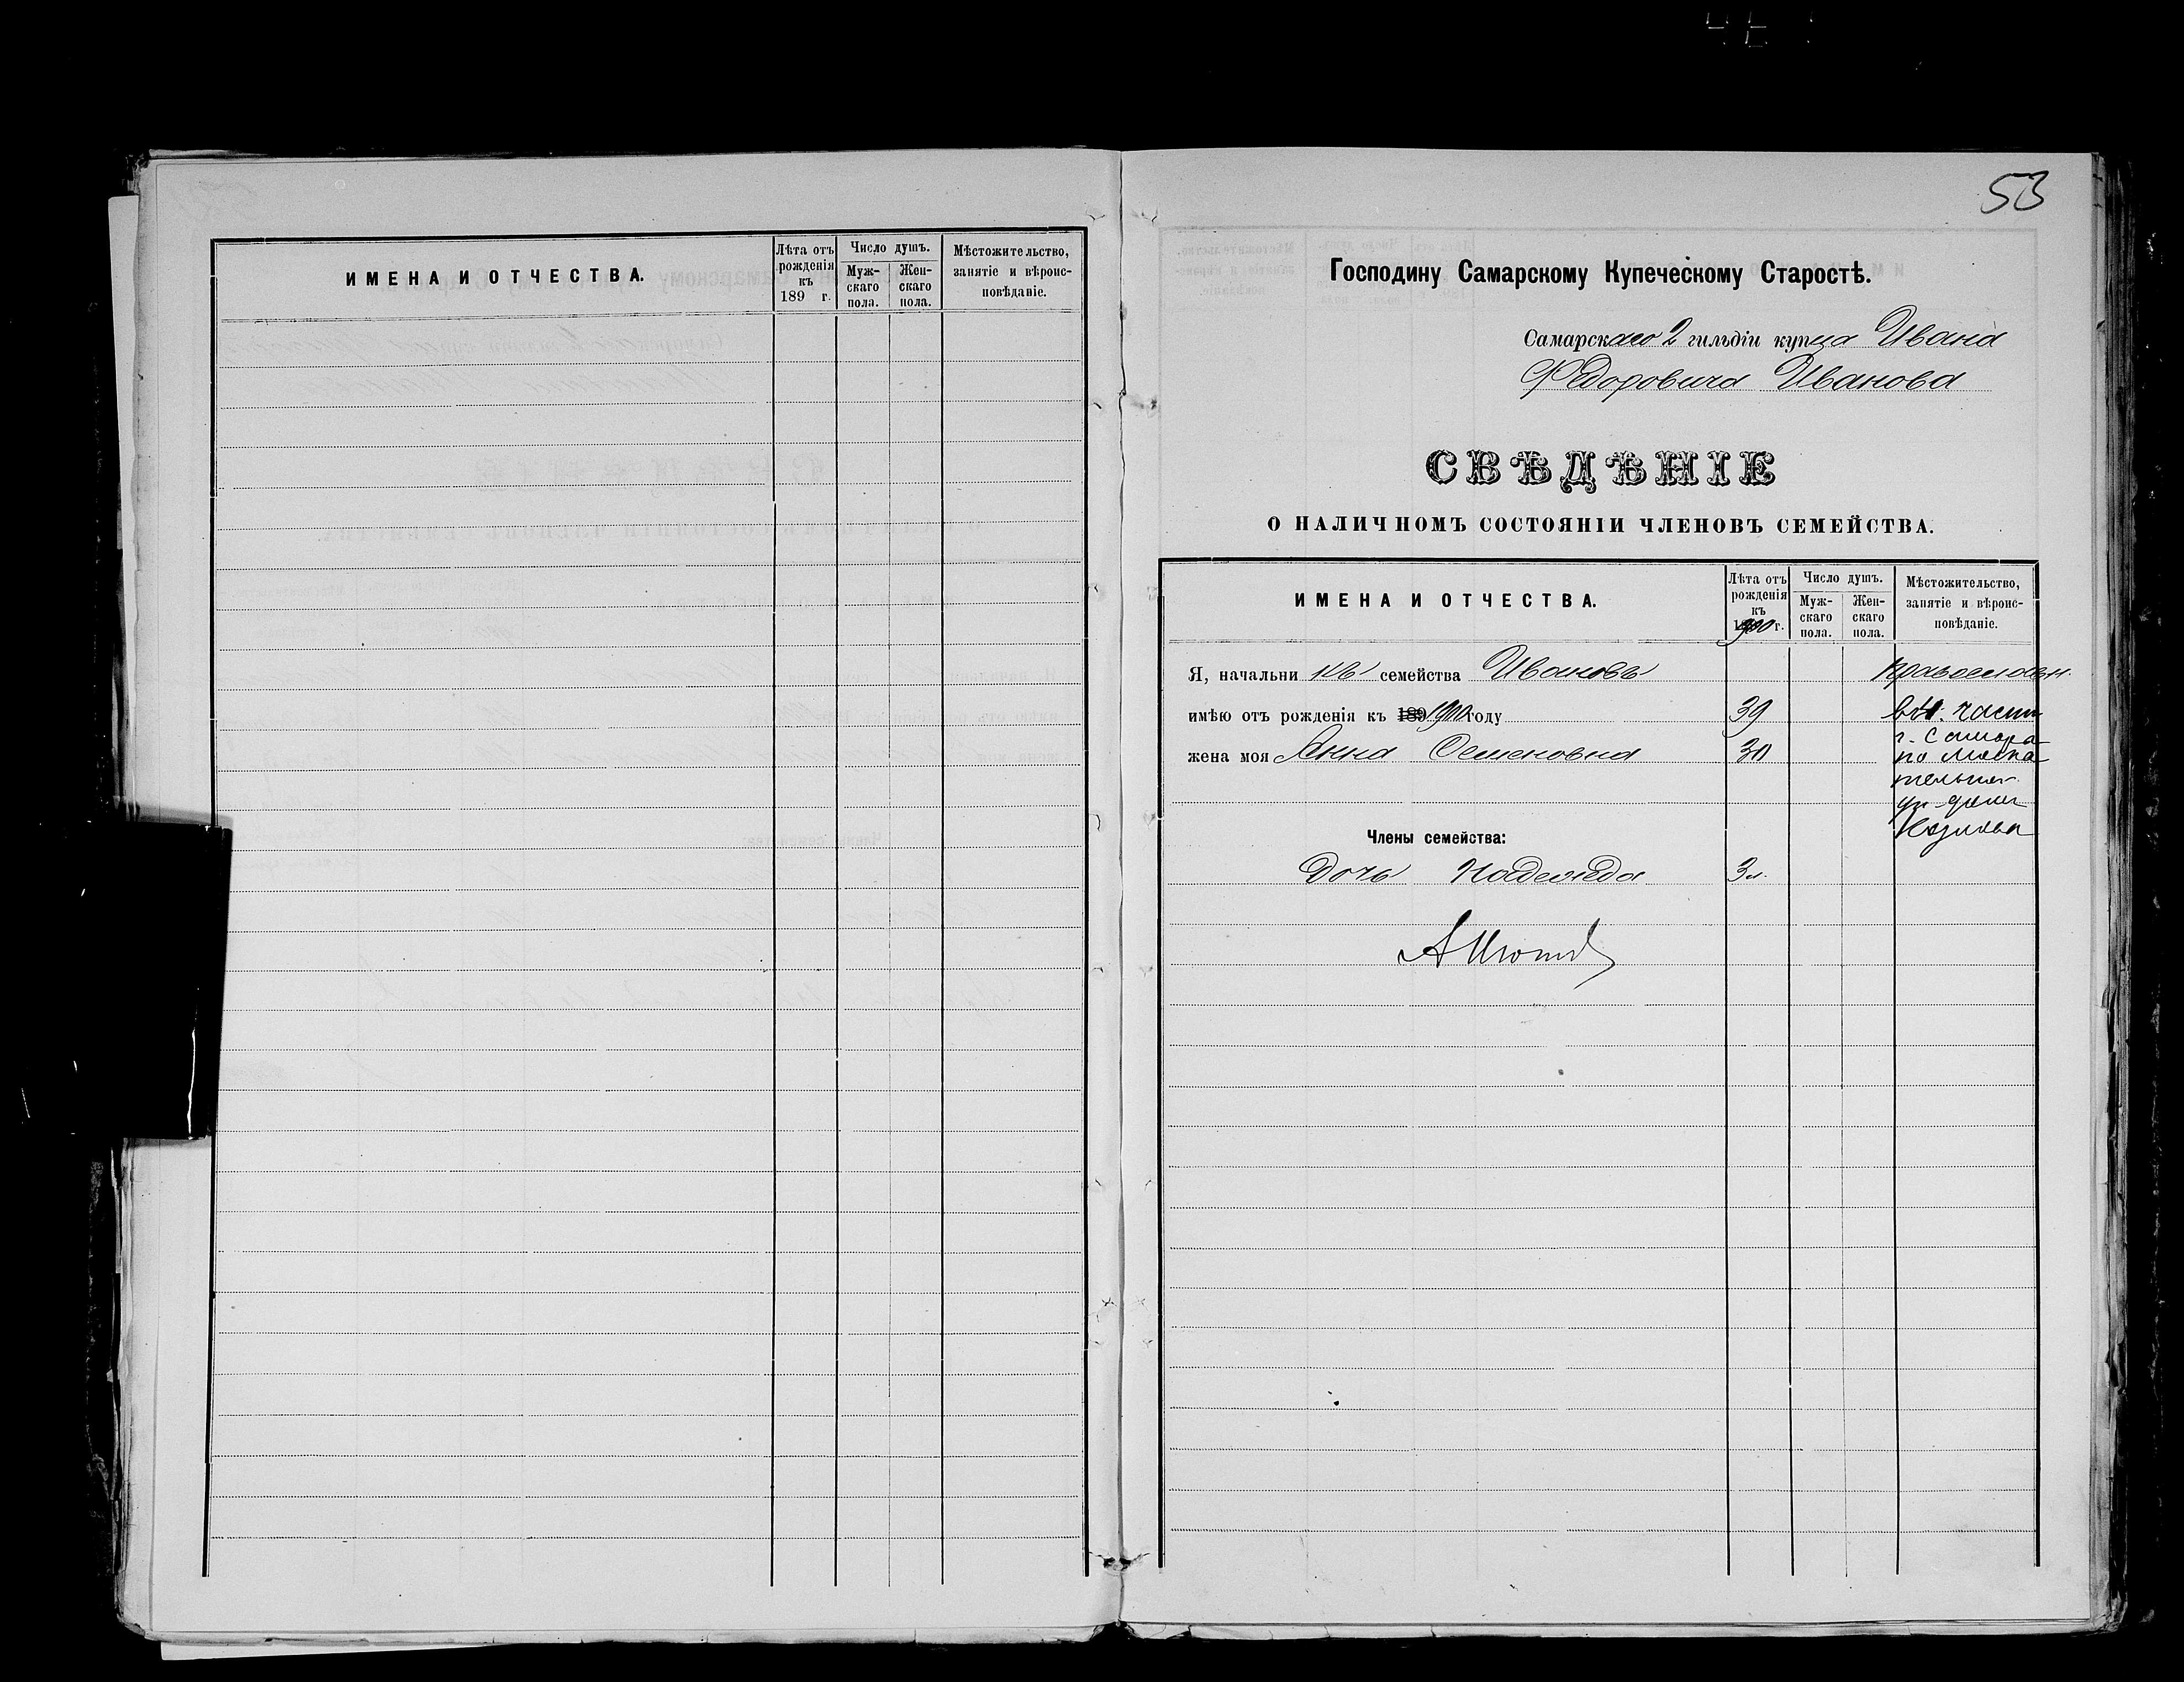 ИМЕНА И ОТЧЕСТВА.
Лѣта отъ рожденія къ 189 г.
Число душъ.
Мужскаго пола.
Женскаго пола.
Мѣстожительство, занятіе и вѣроисповѣданіе.
53
Господину Самарскому Купеческому Старостѣ.
Самарскаго 2 гильдіи купца Ивана
Федоровича Иванова
СВѢДѢНІЕ
О НАЛИЧНОМЪ СОСТОЯНІИ ЧЛЕНОВЪ СЕМЕЙСТВА.
ИМЕНА И ОТЧЕСТВА.
Лѣта отъ рожденія къ 1900 г.
Число душъ.
Мужскаго пола.
Женскаго пола.
Мѣстожительство, занятіе и вѣроисповѣданіе.
Я, начальникъ семейства Ивановъ православн.
имѣю отъ рожденія къ 189 1900 году 39 части
г. Самара
жена моя Анна Семеновна 30
Члены семейства:
Дочь Надежда 3 л.